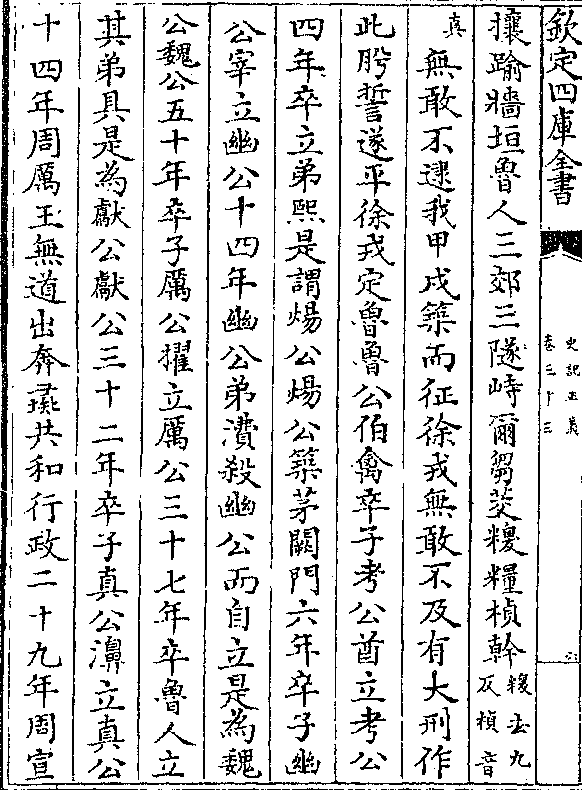 欽定四庫全書
史記正義
卷三十三
攘踰牆垣魯人三郊三隧峙爾芻茭糗糧楨幹糗去九反楨音
真無敢不逮我甲戌築而征徐戎無敢不及有大刑作
此肹誓遂平徐戎定魯魯公伯禽卒子考公酋立考公
四年卒立弟熙是謂煬公煬公築茅闕門六年卒子幽
公宰立幽公十四年幽公弟㵒殺幽公而自立是為魏
公魏公五十年卒子厲公擢立厲公三十七年卒魯人立
其弟具是為獻公獻公三十二年卒子真公濞立真公
十四年周厲王無道出奔彘共和行政二十九年周宣